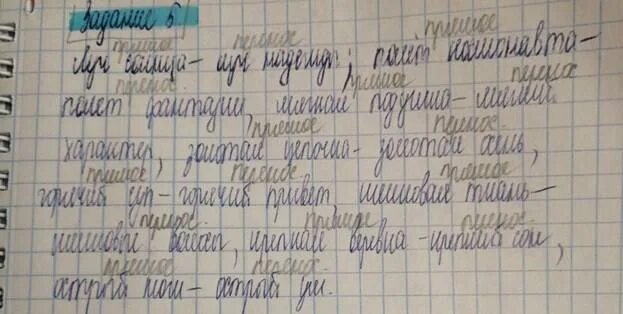 Задание 5
прямое перенос прямое
Луч солнца – луч надежды; полёт космонавта –
перенос. прямое перенос
полет фантазии, мягкая подушка – мягкий
прямое перенос.
характер, золотая цепочка – золотая осень,
прямое перенос. прямое
горячий суп – горячий привет, шелковая ткань –
перенос. прямое перенос.
шелковые волосы, крепкая веревка – крепкий сон,
прямое перенос.
острый нож – острый ум.